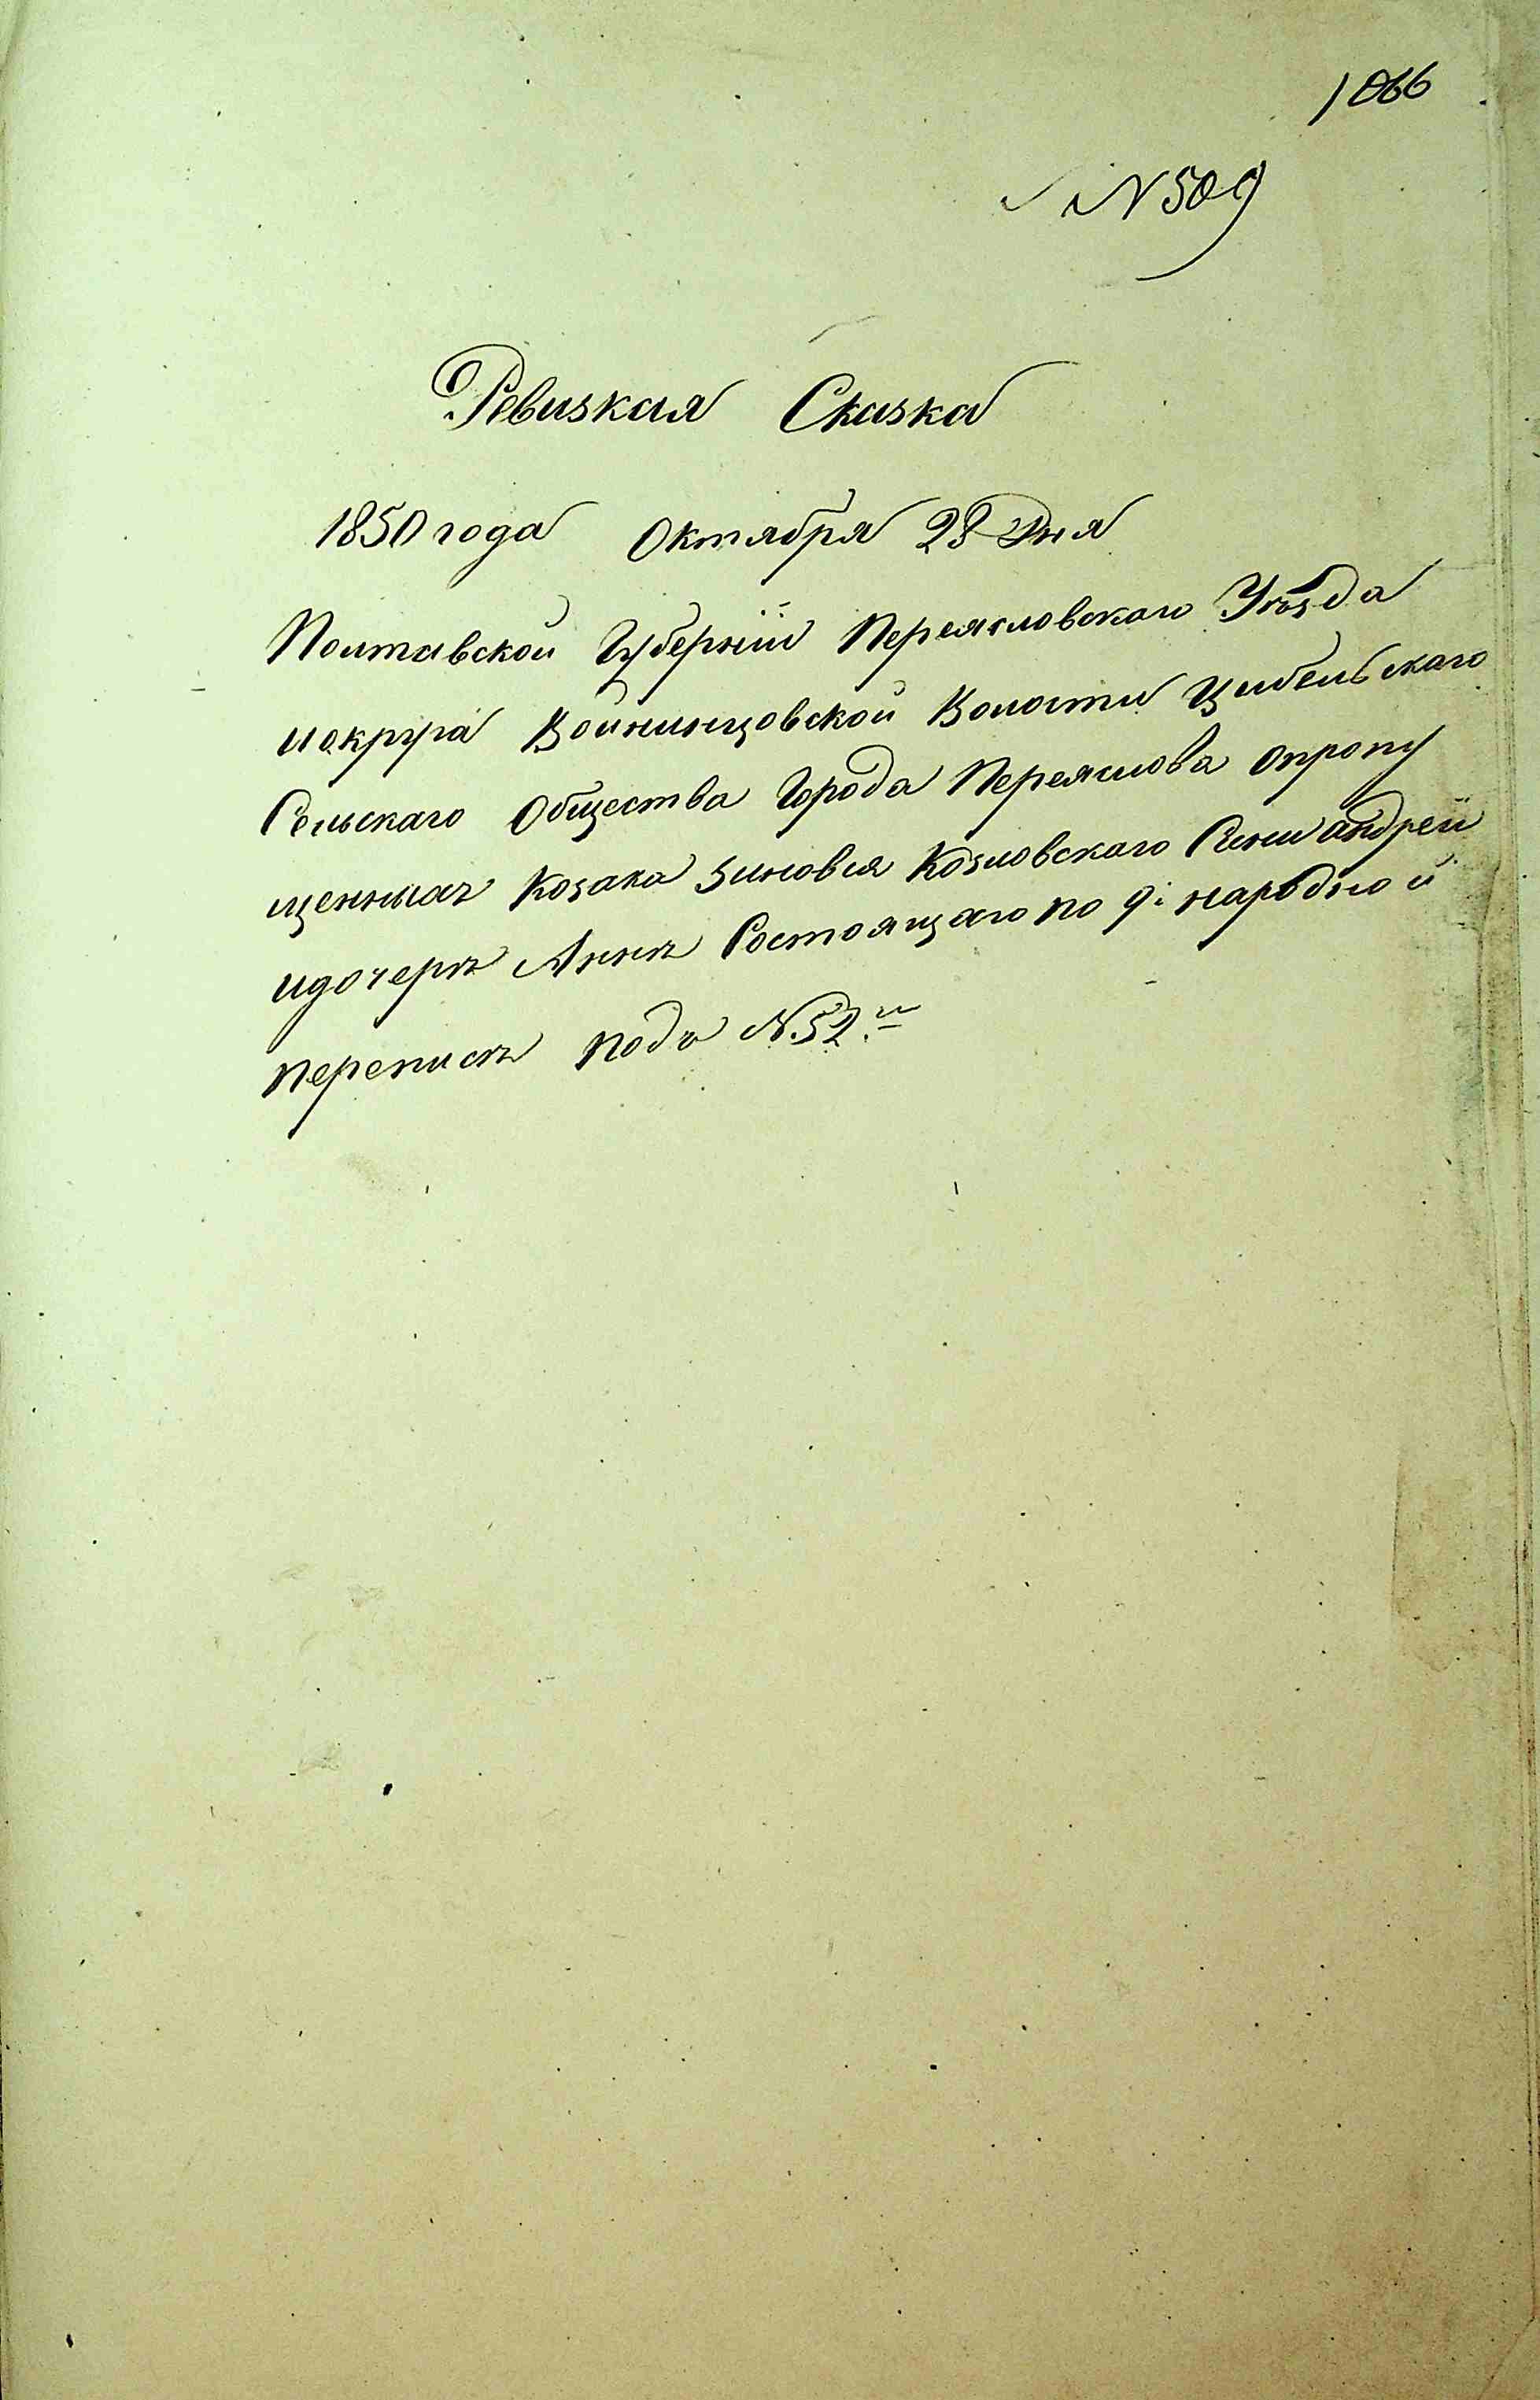 1066
№ 509
Ревизкая Сказка
1850 года Октября 28 Дня
Полтавской Губерніи Переясловскаго Уѣзда
иокруга Войнинцовской Волости Цибельскаго
Сельскаго Общества Города Переяслова опропу
щенныхъ Козака Зиновия Козловскаго Сыни андреи
идочеръ Аннѣ Состоящаго по 9й народной
переписѣ подъ N. 52.м